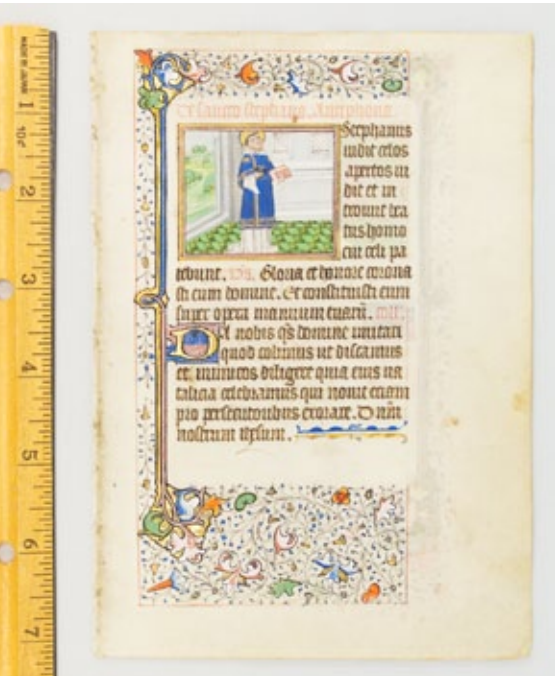 De sancto stephano Antiphona.
Stephanus
uidit celos
apertos ui
dit et in
troiuit bea
tus homo
cui celi pa
tebunt. Gloria et honore corona
sti eum domine. Et constituisti eum
super opera manuum tuarū.
Da nobis q̄s domine imitari
quod colimus ut discamus
et inimicos diligere quia eius na
talicia celebramus qui nouit etiam
pro persecutoribus exorare. D nm̄
nostrum ihesum.
MADE IN JAPAN
1
2
3
4
5
6
7